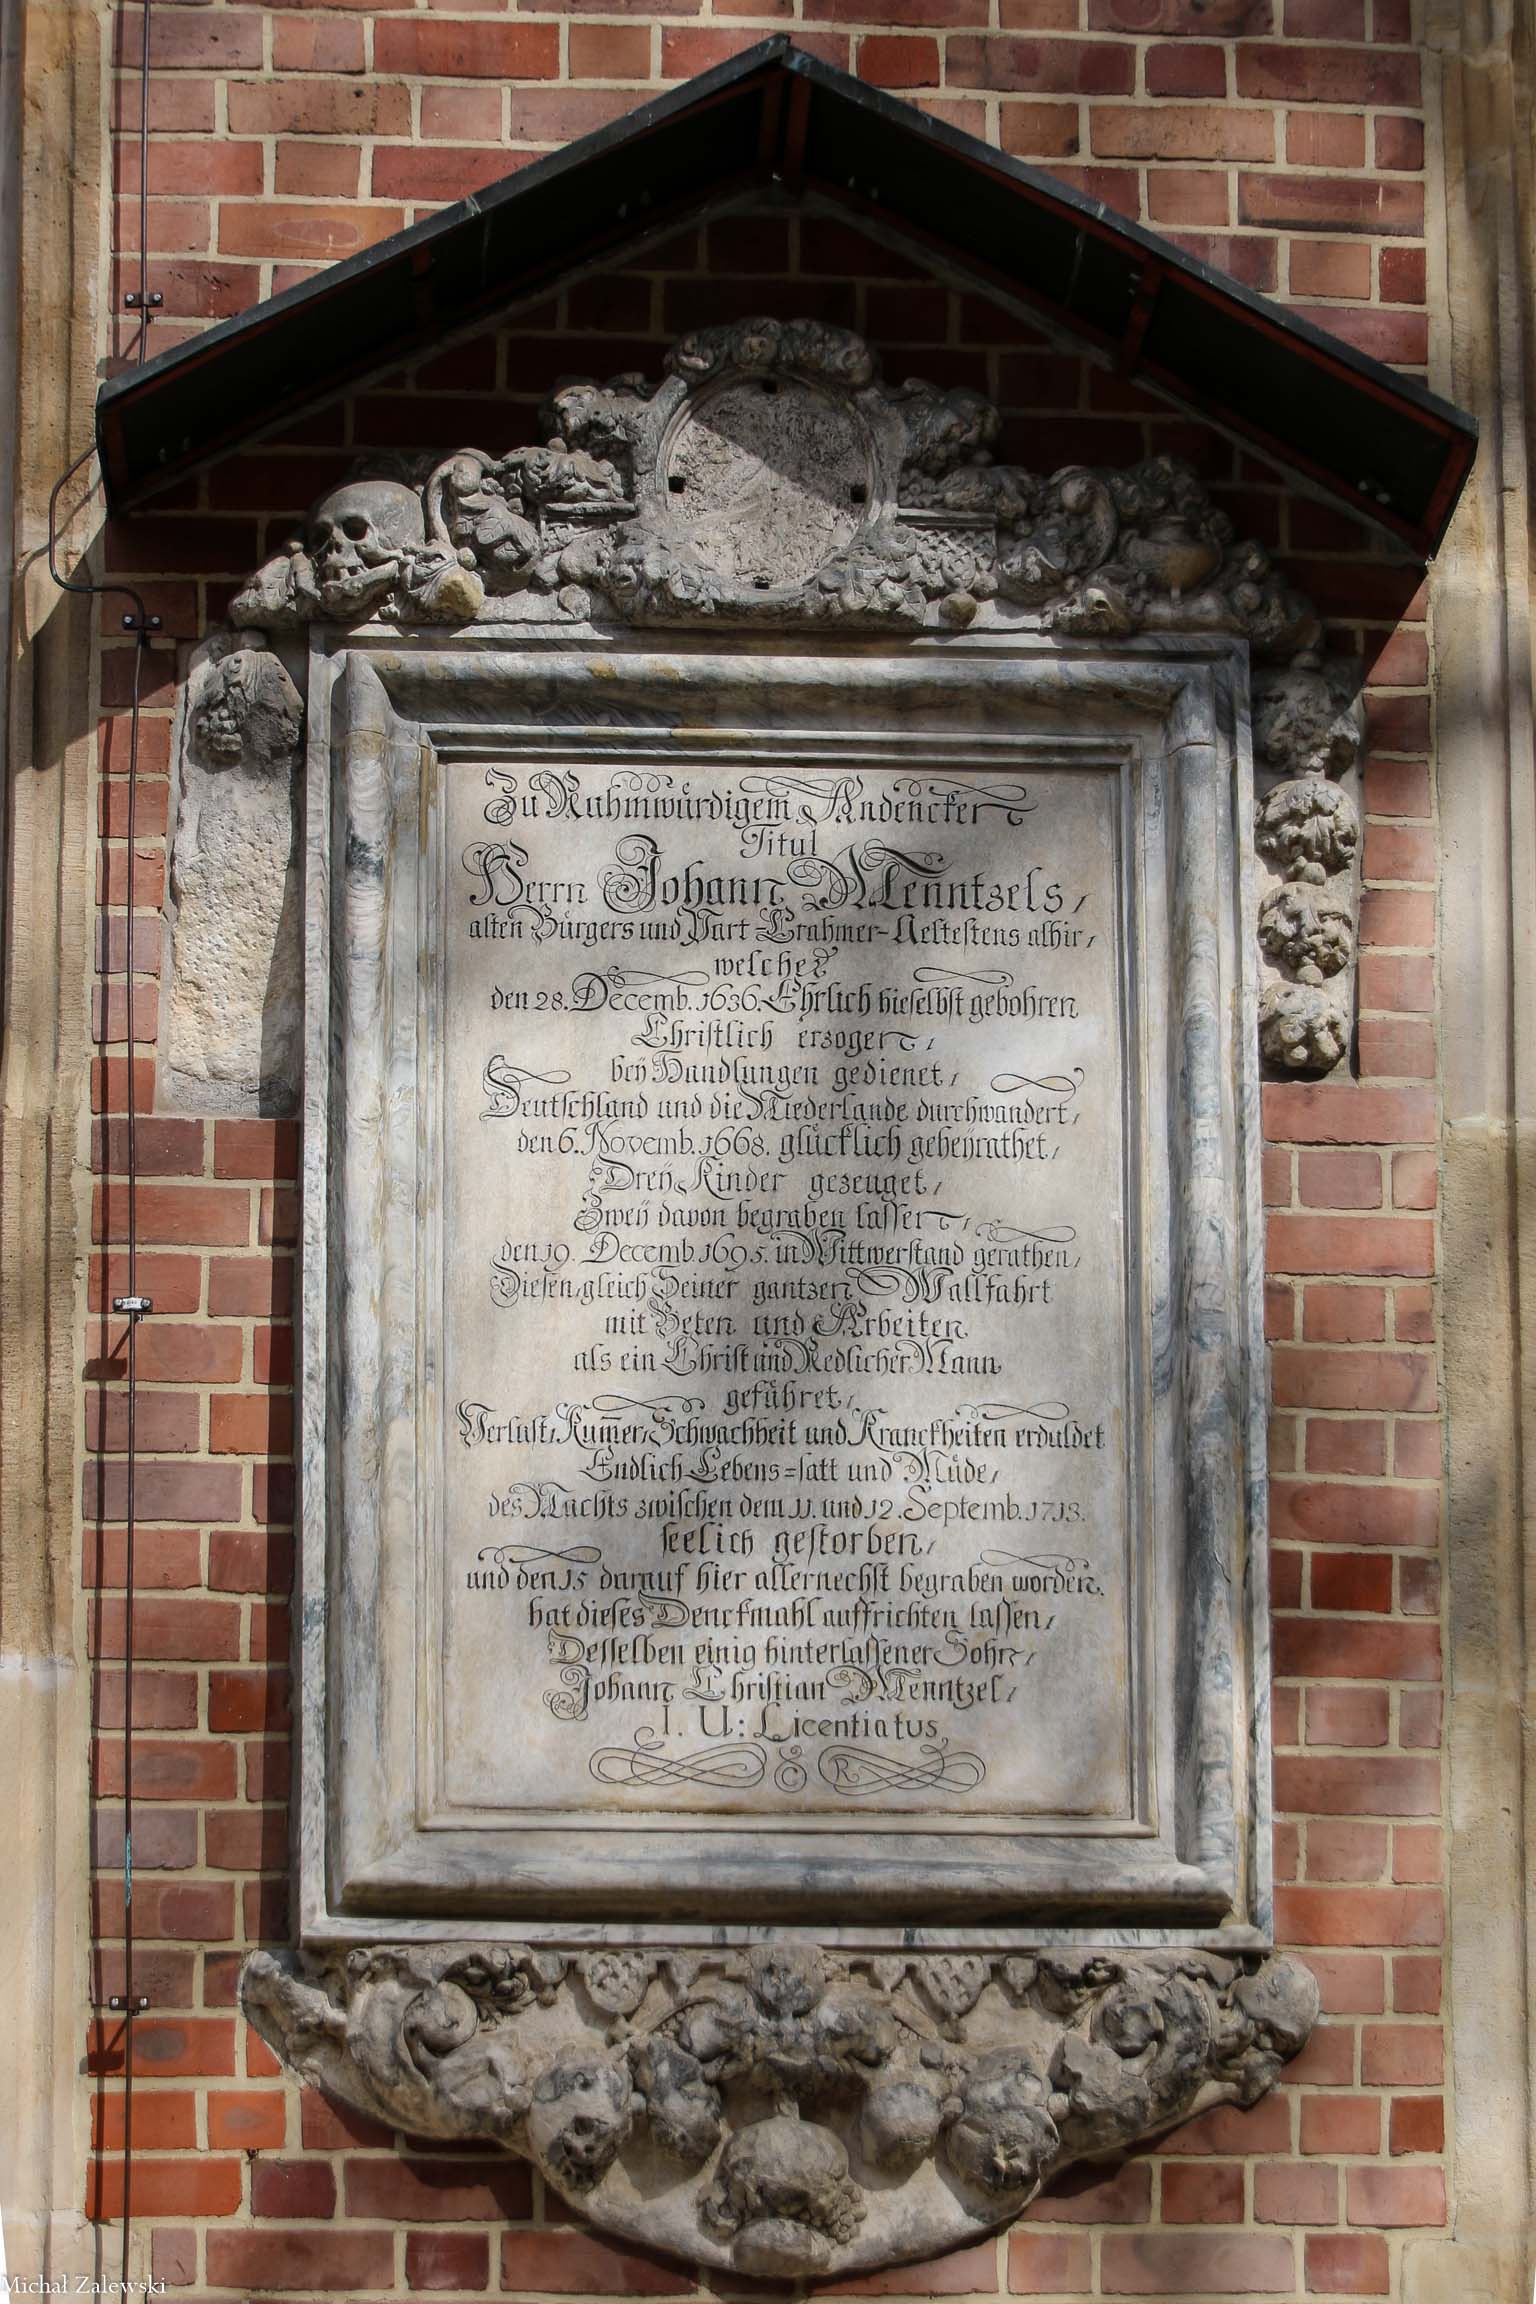 Zu Ruhmwürdigem Andencken
Titul
Herrn Johann Menntzels,
alten Bürgers und Part-Crahmer-Aeltestens alhir,
welcher
den 28. Decemb. 1636. Ehrlich hieselbst gebohren
Christlich erzogen,
beÿ Handlungen gedienet,
Deutschland und die Niederlande durchwandert,
den 6. Novemb. 1668. glücklich geheÿrathet,
Dreÿ Kinder gezeuget,
Zweÿ davon begraben lassen,
den 19. Decemb. 1695. in Wittwerstand gerathen,
Diesen, gleich Seiner gantzen Wallfahrt
mit Beten und Arbeiten
als ein Christ und Redlicher Mann
geführet,
Verlust, Kum̅er, Schwachheit und Kranckheiten erduldet
Endlich Lebens=satt und Müde,
des Nachts zwischen dem 11. und 12. Septemb. 1713.
seelich gestorben,
und den 15 darauf hier allernechst begraben worden.
hat dieses Denckmahl auffrichten lassen,
Desselben einig hinterlassener Sohn,
Johann Christian Menntzel,
I. U: Licentiatus,
C R
Michał Zalewski